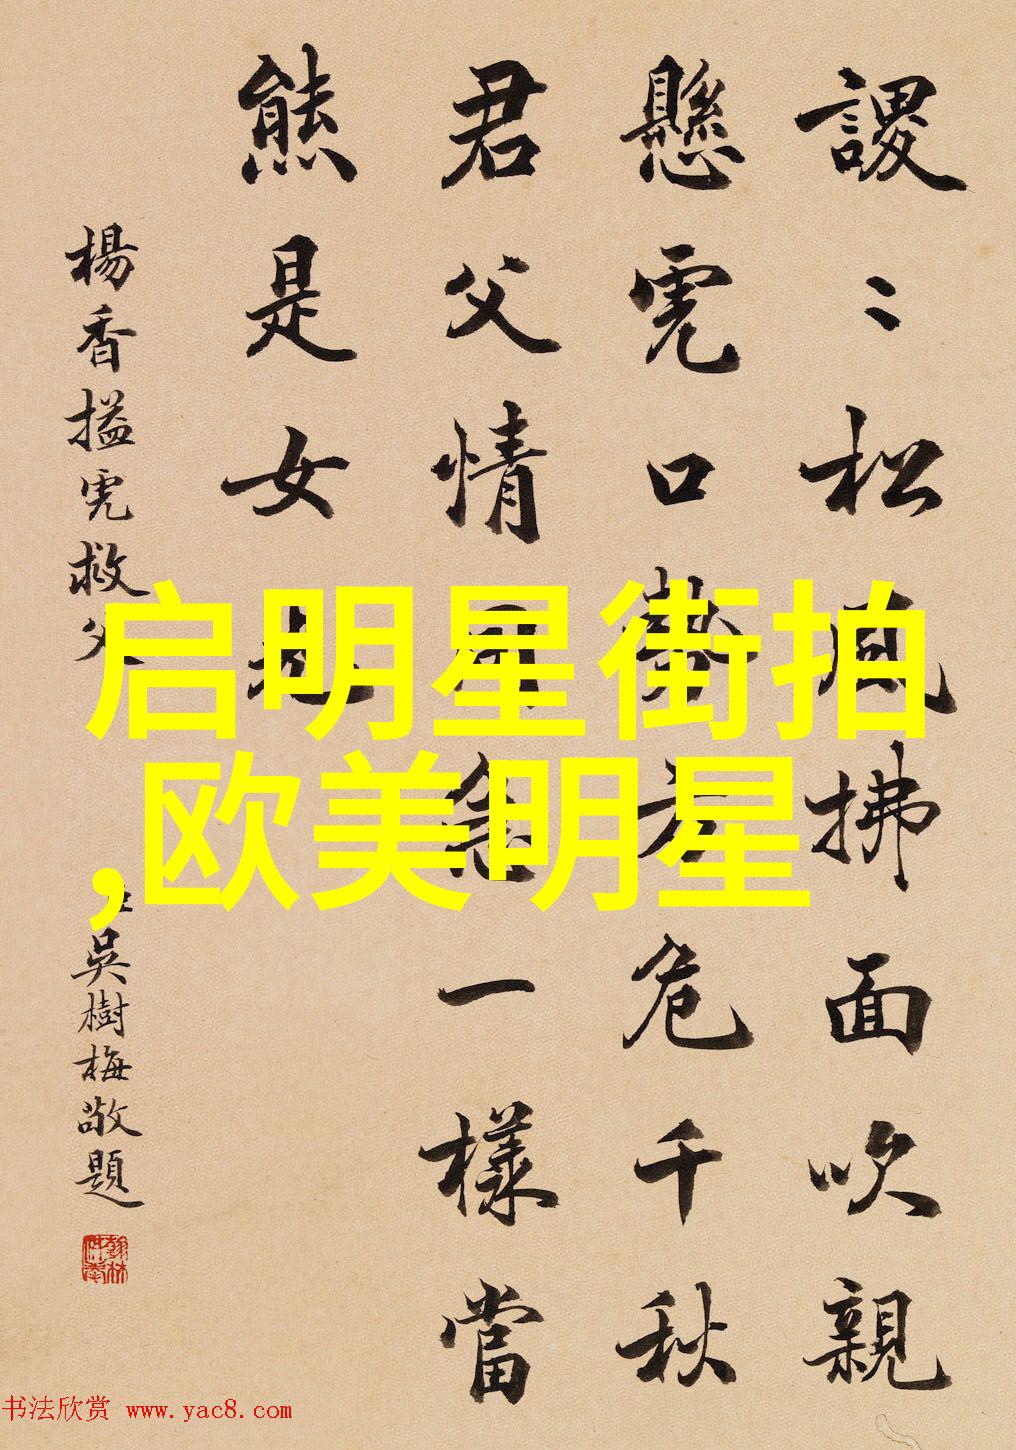 謖〻松風拂面吹親
懸虎口勢方危千秋
君父情同急一樣當
熊是女
楊香搤虎救父
吳樹梅敬題
启明星街拍
,欧美明星
书法欣赏 www.yac8.com